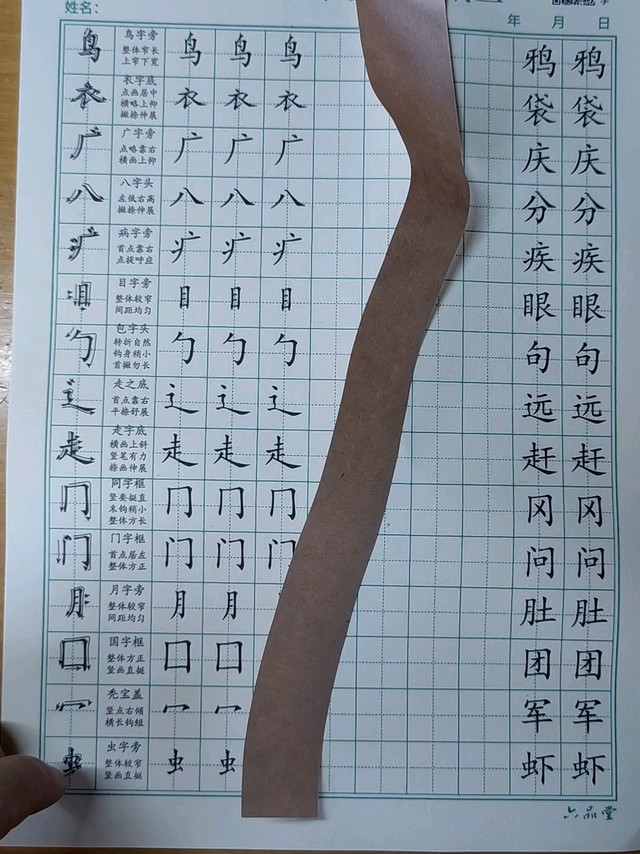 姓名: 年 月 日
鸟 鸟字旁 鸟 鸟 鸟 鸦 鸦
整体窄长
上窄下宽
衣 衣字底 衣 衣 衣 袋 袋
点画居中
横略上仰
撇捺伸展
广 广字旁 广 广 广 庆 庆
点略靠右
横画上仰
八 八字头 八 八 八 分 分
左低右高
撇捺伸展
疒 病字旁 疒 疒 疒 疾 疾
首点靠右
点提呼应
目 目字旁 目 目 目 眼 眼
整体较窄
间距均匀
勹 包字头 勹 勹 勹 句 句
转折自然
钩身稍小
首撇勿长
辶 走之底 辶 辶 辶 远 远
首点靠右
平捺舒展
走 走字底 走 走 走 赶 赶
横画上斜
竖笔有力
捺画伸展
冂 同字框 冂 冂 冂 冈 冈
竖要挺直
末钩稍小
整体方长
门 门字框 门 门 门 问 问
首点居左
整体方正
月 月字旁 月 月 肚 肚
整体较窄
间距均匀
囗 国字框 囗 囗 团 团
整体方正
竖画直挺
冖 秃宝盖 冖 冖 军 军
竖点右倾
横长钩组
虫 虫字旁 虫 虫 虾 虾
整体较窄
竖画直挺
六品堂